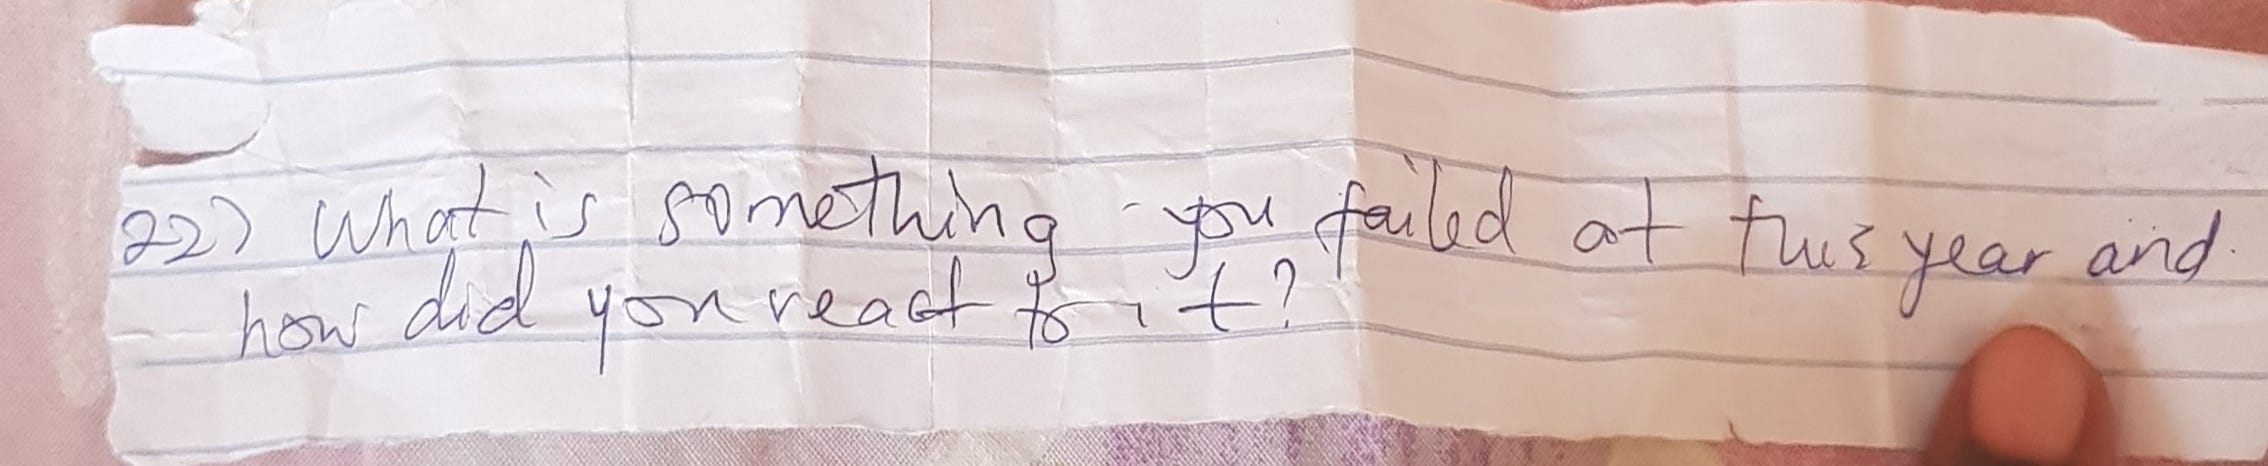 22) What is something you failed at this year and
how did you react to it?